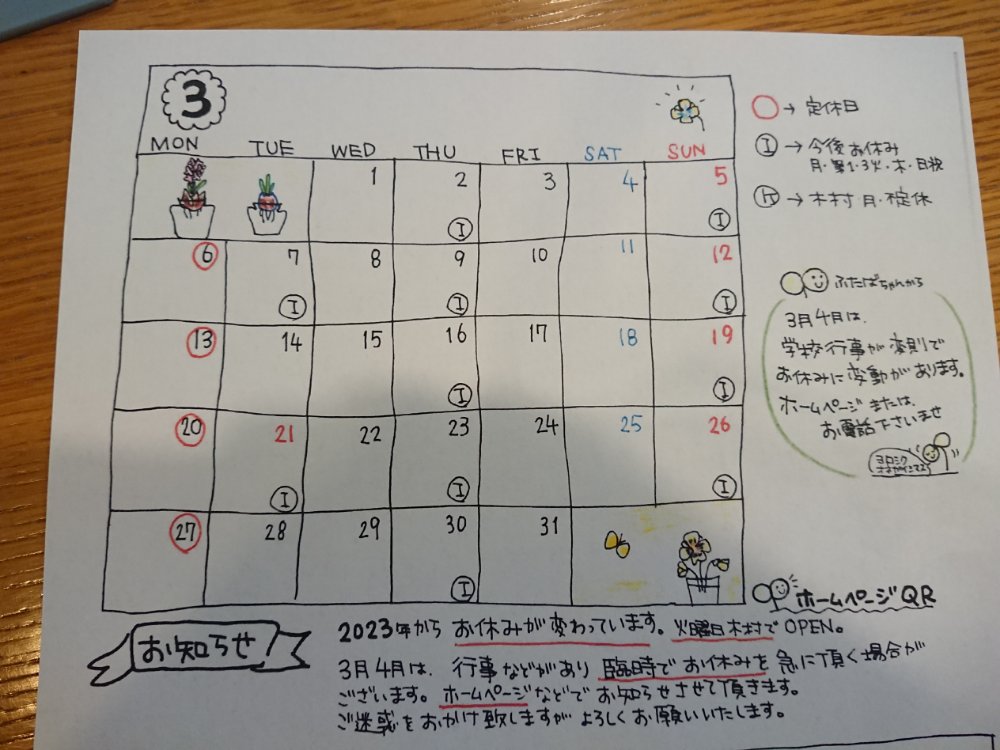 3
MON TUE WED THU FRI SAT SUN
1 2 3 4 5
I I
6 7 8 9 10 11 12
I I I
13 14 15 16 17 18 19
I I
20 21 22 23 24 25 26
I I I
27 28 29 30 31
I
○→定休日
I→今後お休み
月・第1・3火・木・日祝
→木村月・定休
ふたばちゃんから
3月4月は、
学校行事が変則で
お休みに変動があります。
ホームページまたは、
お電話下さいませ
ヨロシク
オネガイシマス
ホームページQR
お知らせ
2023年から お休みが変わっています。火曜日木村でOPEN。
3月4月は、行事などがあり臨時でお休みを急に頂く場合が
ございます。ホームページなどでお知らせさせて頂きます。
ご迷惑をおかけ致しますがよろしくお願いいたします。